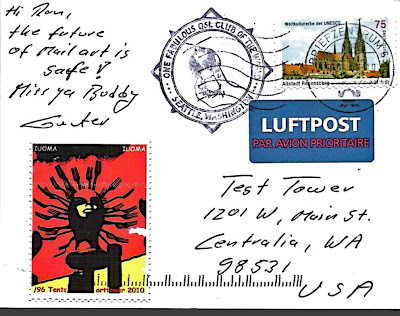 Hi Ron,
the future
of Mail art is
safe!
Miss ya Buddy
ONE FABULOUS QSL CLUB OF THE
SEATTLE, WASHINGTON
Weltkulturerbe der UNESCO
75
Altstadt Regensburg
BRIEFZENTRUM
LUFTPOST
PAR AVION PRIORITAIRE
Test Tower
1201 W. Main St.
Centralia, WA
98531
USA
IUOMA IUOMA
/96 Tents artistwer 2010